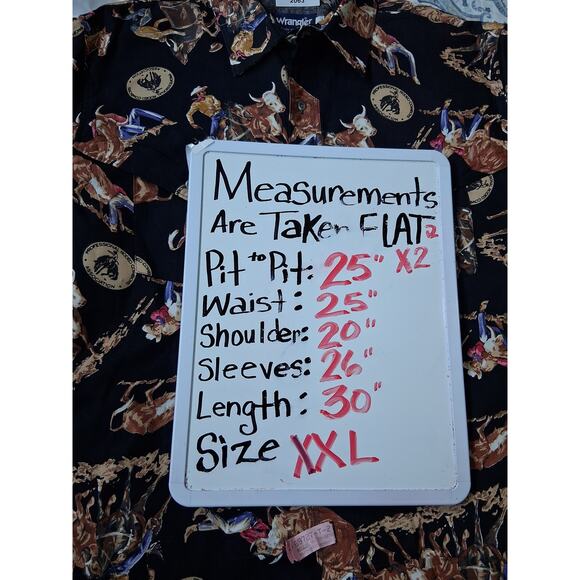 2063
Wrangler
Measurements
Are Taken FLAT 2
Pit to Pit: 25" X2
Waist: 25"
Shoulder: 20"
Sleeves: 26"
Length: 30"
Size XXL